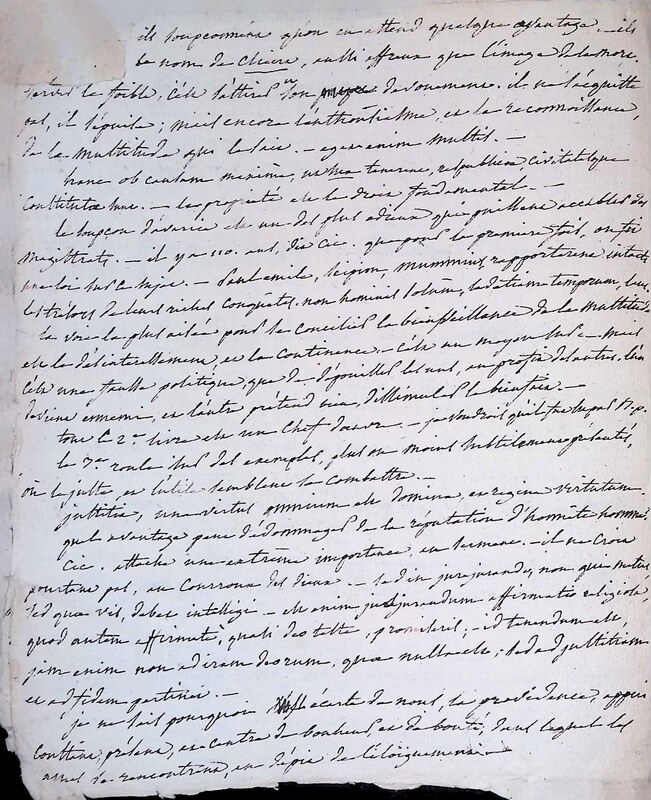 ils soupçonnent qu'on en attend quelque avantage. — ils
le nom de client, aussi affreux que l'image de la mort.
servir le foible, c'est s'attirer un son dévouement. il ne s'acquitte
pas, il s'épuise; mais encore l'enthousiasme, et la reconnoissance,
de la multitude qui le suit. — egens enim multis. —
hanc ob causam maximè, ut sua tenerent, respublicæ civitatesque
constitutæ sunt. — la propriété est le droit fondamental. —
le soupçon d'avarice est un des plus odieux qui puissent accabler des
magistrats. — il y a 110. ans, dit Cic. que pour la première fois, on fit
une loi sur ce sujet. — Paul emile, scipion, mummius, rapportèrent intacts
les trésors de leurs riches conquêtes. non hominis solum, sed etiam temporum, laus
la voie la plus aisée pour se concilier la bienveillance de la multitude
est le désintéressement, et la continence. — c'est un moyen sur. — mais
c'est une fausse politique, que de dépouiller les uns, au profit des autres. l'un
devient ennemi, et l'autre prétend bien, dissimuler le bienfait. —
tout ce 2e. livre est un chef d'œuvre. — je voudrois qu'il fut
le 3e. roule sur des exemples, plus ou moins subtilement présentés,
où le juste, et l'utile semblent se combattre. —
justitia, una virtus omnium est domina, et regina virtutum.
quel avantage peut dédommager de la réputation d'honnête homme.
Cic. attache une extrême importance, au serment. — il ne croit
pourtant pas, au courroux des dieux. — sed in jurejurando, non qui metus
sed quæ vis, debet intelligi. — est enim jusjurandum affirmatio religiosa,
quod autem affirmatè, quasi deo teste, promiseris, — id tenendum est,
jam enim non ad iram deorum, quæ nulla est; sed ad justitiam
et ad fidem pertinet. —
je ne sais pourquoi écarte de nous, la providence, appui
constant, présent, et centre de bonheur, et de bonté, dans lequel les
ames se rencontrent, en dépit de l'éloignement. —